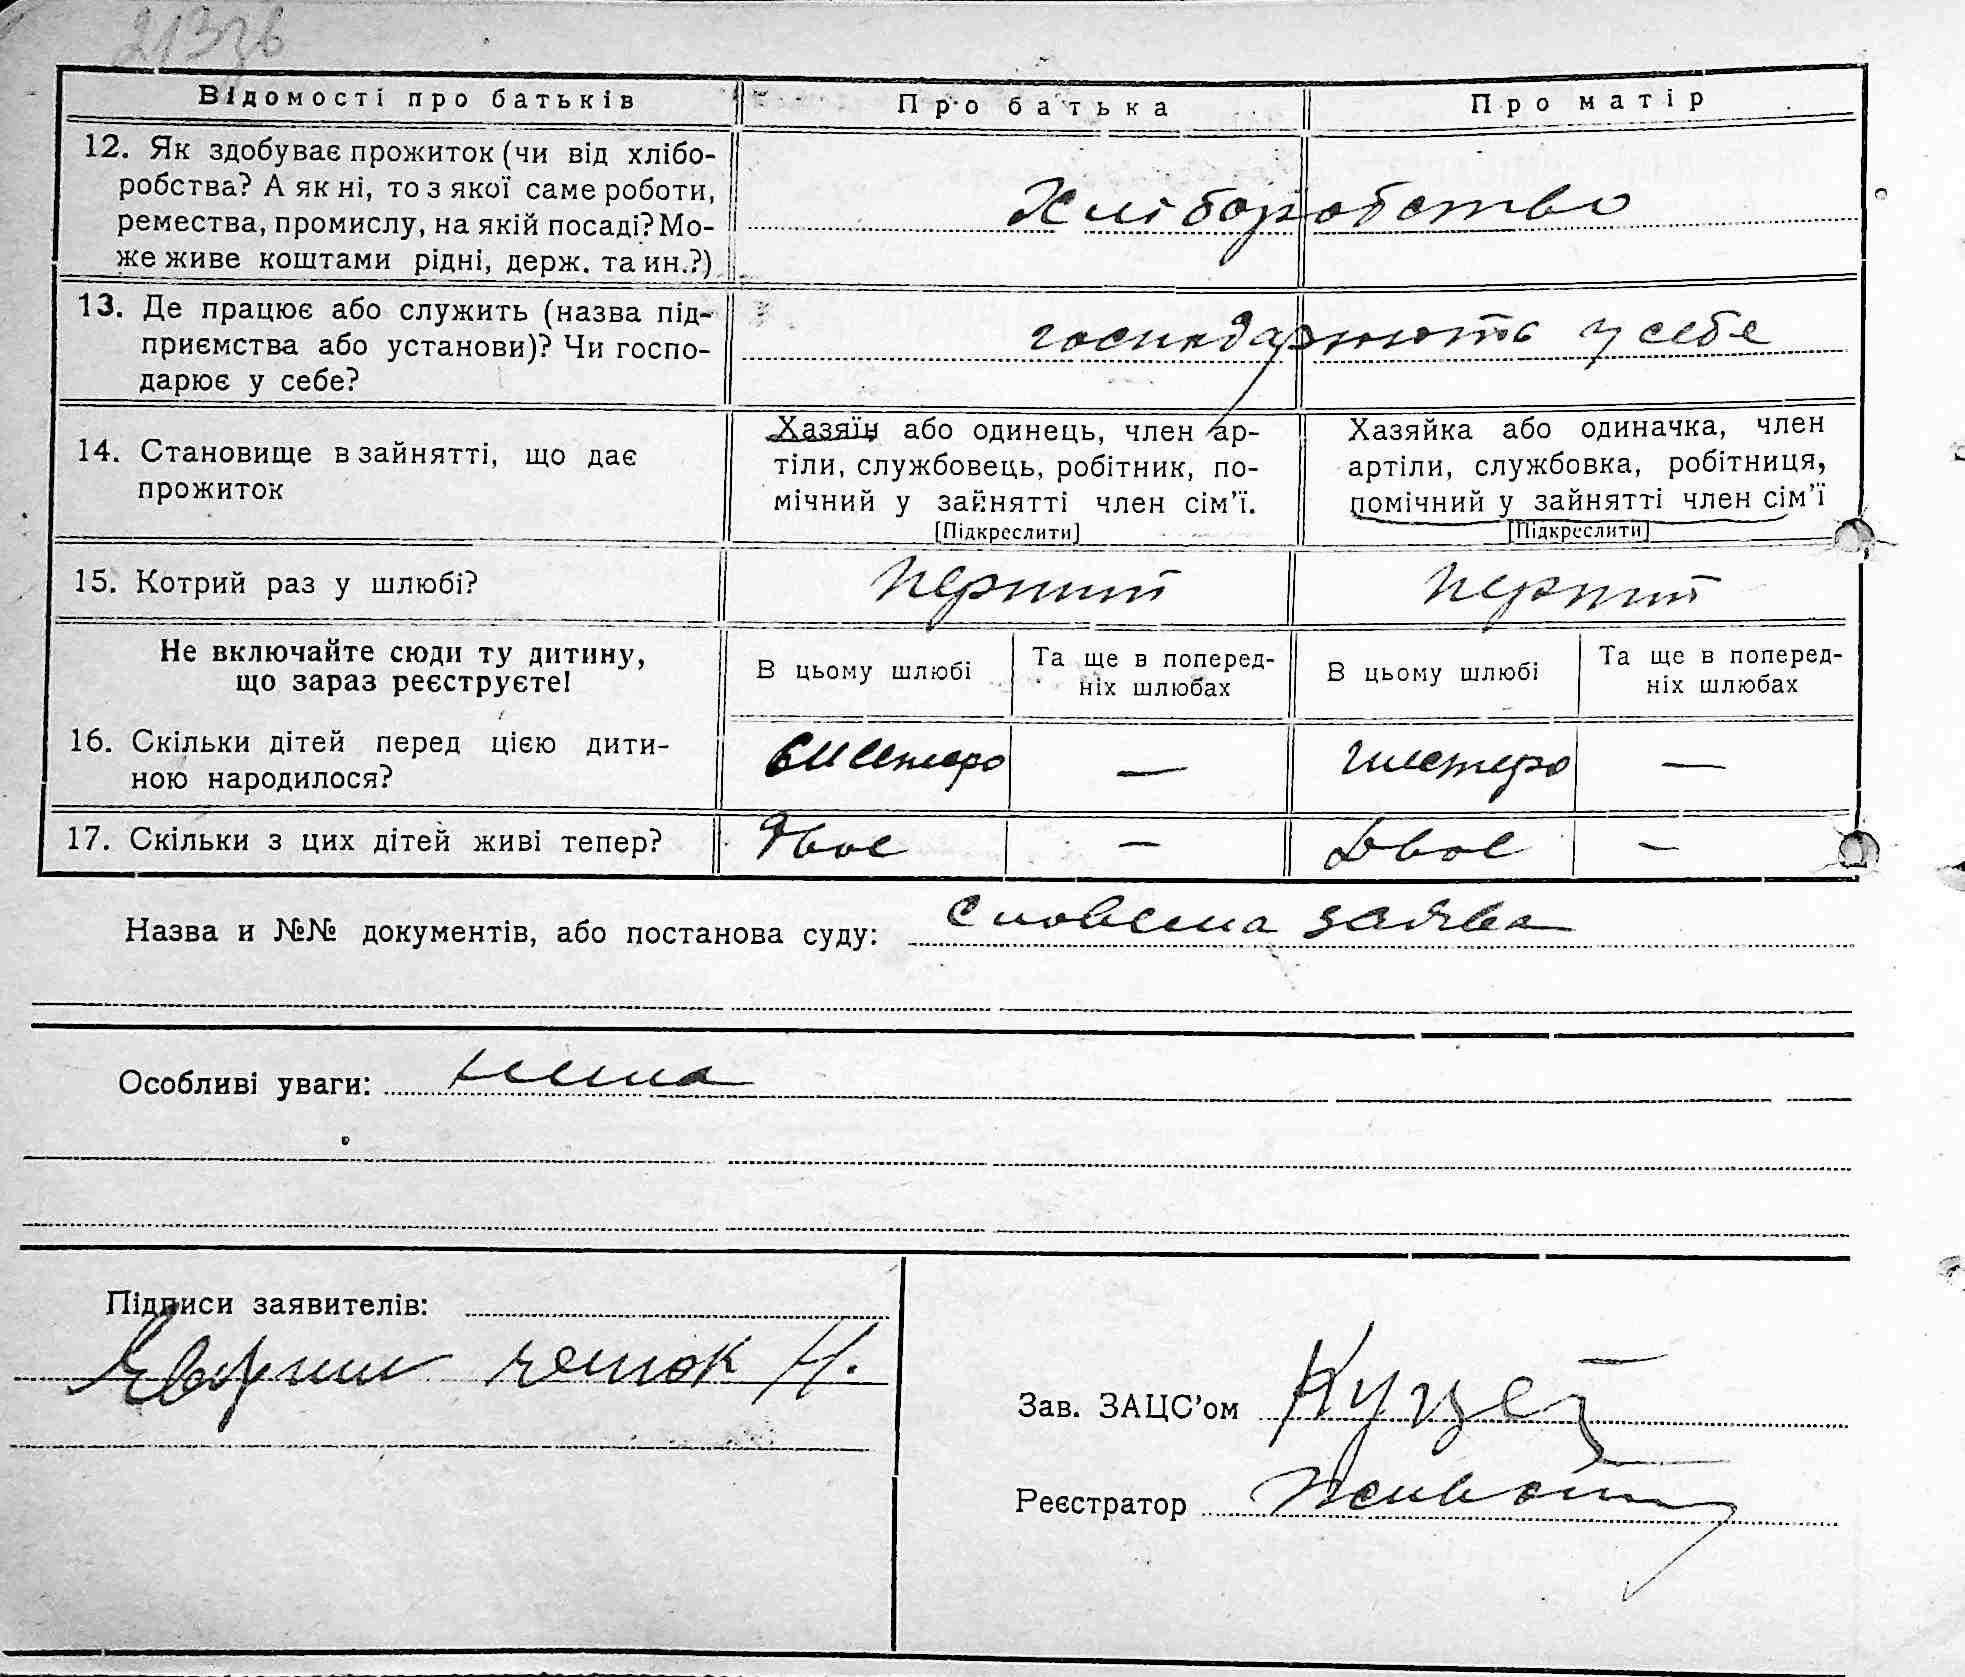 213зв
Відомості про батьків Про батька Про матір
12. Як здобуває прожиток (чи від хлібо-
робства? А як ні, то з якої саме роботи,
ремества, промислу, на якій посаді? Мо-
же живе коштами рідні, держ. та ин.?)
Хліборобство
13. Де працює або служить (назва під-
приємства або установи)? Чи госпо-
дарює у себе?
господарюють у себе
14. Становище в зайнятті, що дає
прожиток
Хазяїн або одинець, член ар-
тіли, службовець, робітник, по-
мічний у зайнятті член сім'ї.
[Підкреслити]
Хазяйка або одиначка, член
артіли, службовка, робітниця,
помічний у зайнятті член сім'ї
[Підкреслити]
15. Котрий раз у шлюбі? перший перший
Не включайте сюди ту дитину,
що зараз реєструєте!
В цьому шлюбі
Та ще в поперед-
ніх шлюбах
В цьому шлюбі
Та ще в поперед-
ніх шлюбах
16. Скільки дітей перед цією дити-
ною народилося?
шестеро — шестеро —
17. Скільки з цих дітей живі тепер? Двоє — Двоє —
Назва и №№ документів, або постанова суду: словесна заява
Особливі уваги: нема
Підписи заявителів:
Н.
Зав. ЗАЦС'ом Куцей
Реєстратор